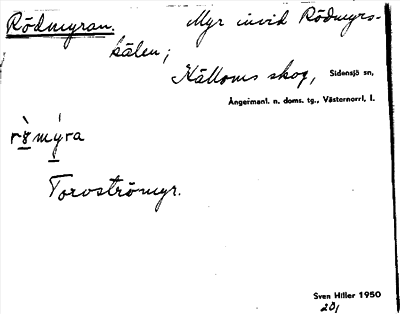 Rödmyran. Myr invid Rödmyrs-
kälen;
Källoms skog, Sidensjö sn,
Ångermanl. n. doms. tg., Västernorrl. l.
Torvströmyr.
Sven Hiller 1950
201